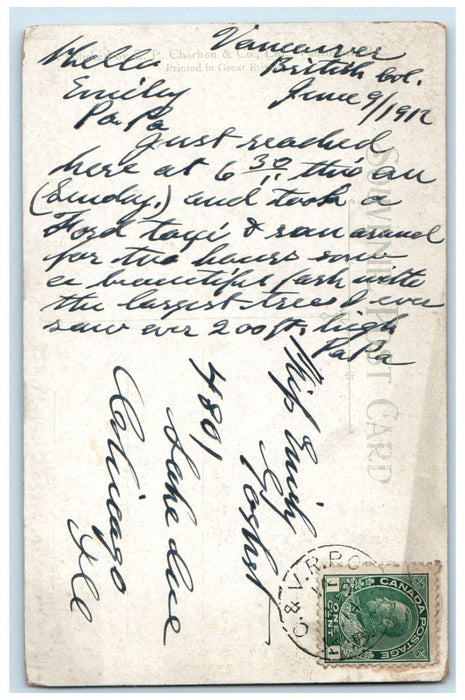 Vancouver
British Col.
June 9/1912
Hello
Emily
PaPa
Just reached
here at 6 30 this am
(Sunday.) and took a
Ford taxi & ran around
for two hours saw
a beautiful park with
the largest trees I ever
saw over 200 ft. high
PaPa
Charlton & Co.,
Printed in Great
SOUVENIR POST CARD
Miss Emily
4801
Lake Ave
Chicago
Ill
C. & V. R.P.O.
CANADA POSTAGE
1 CENT 1